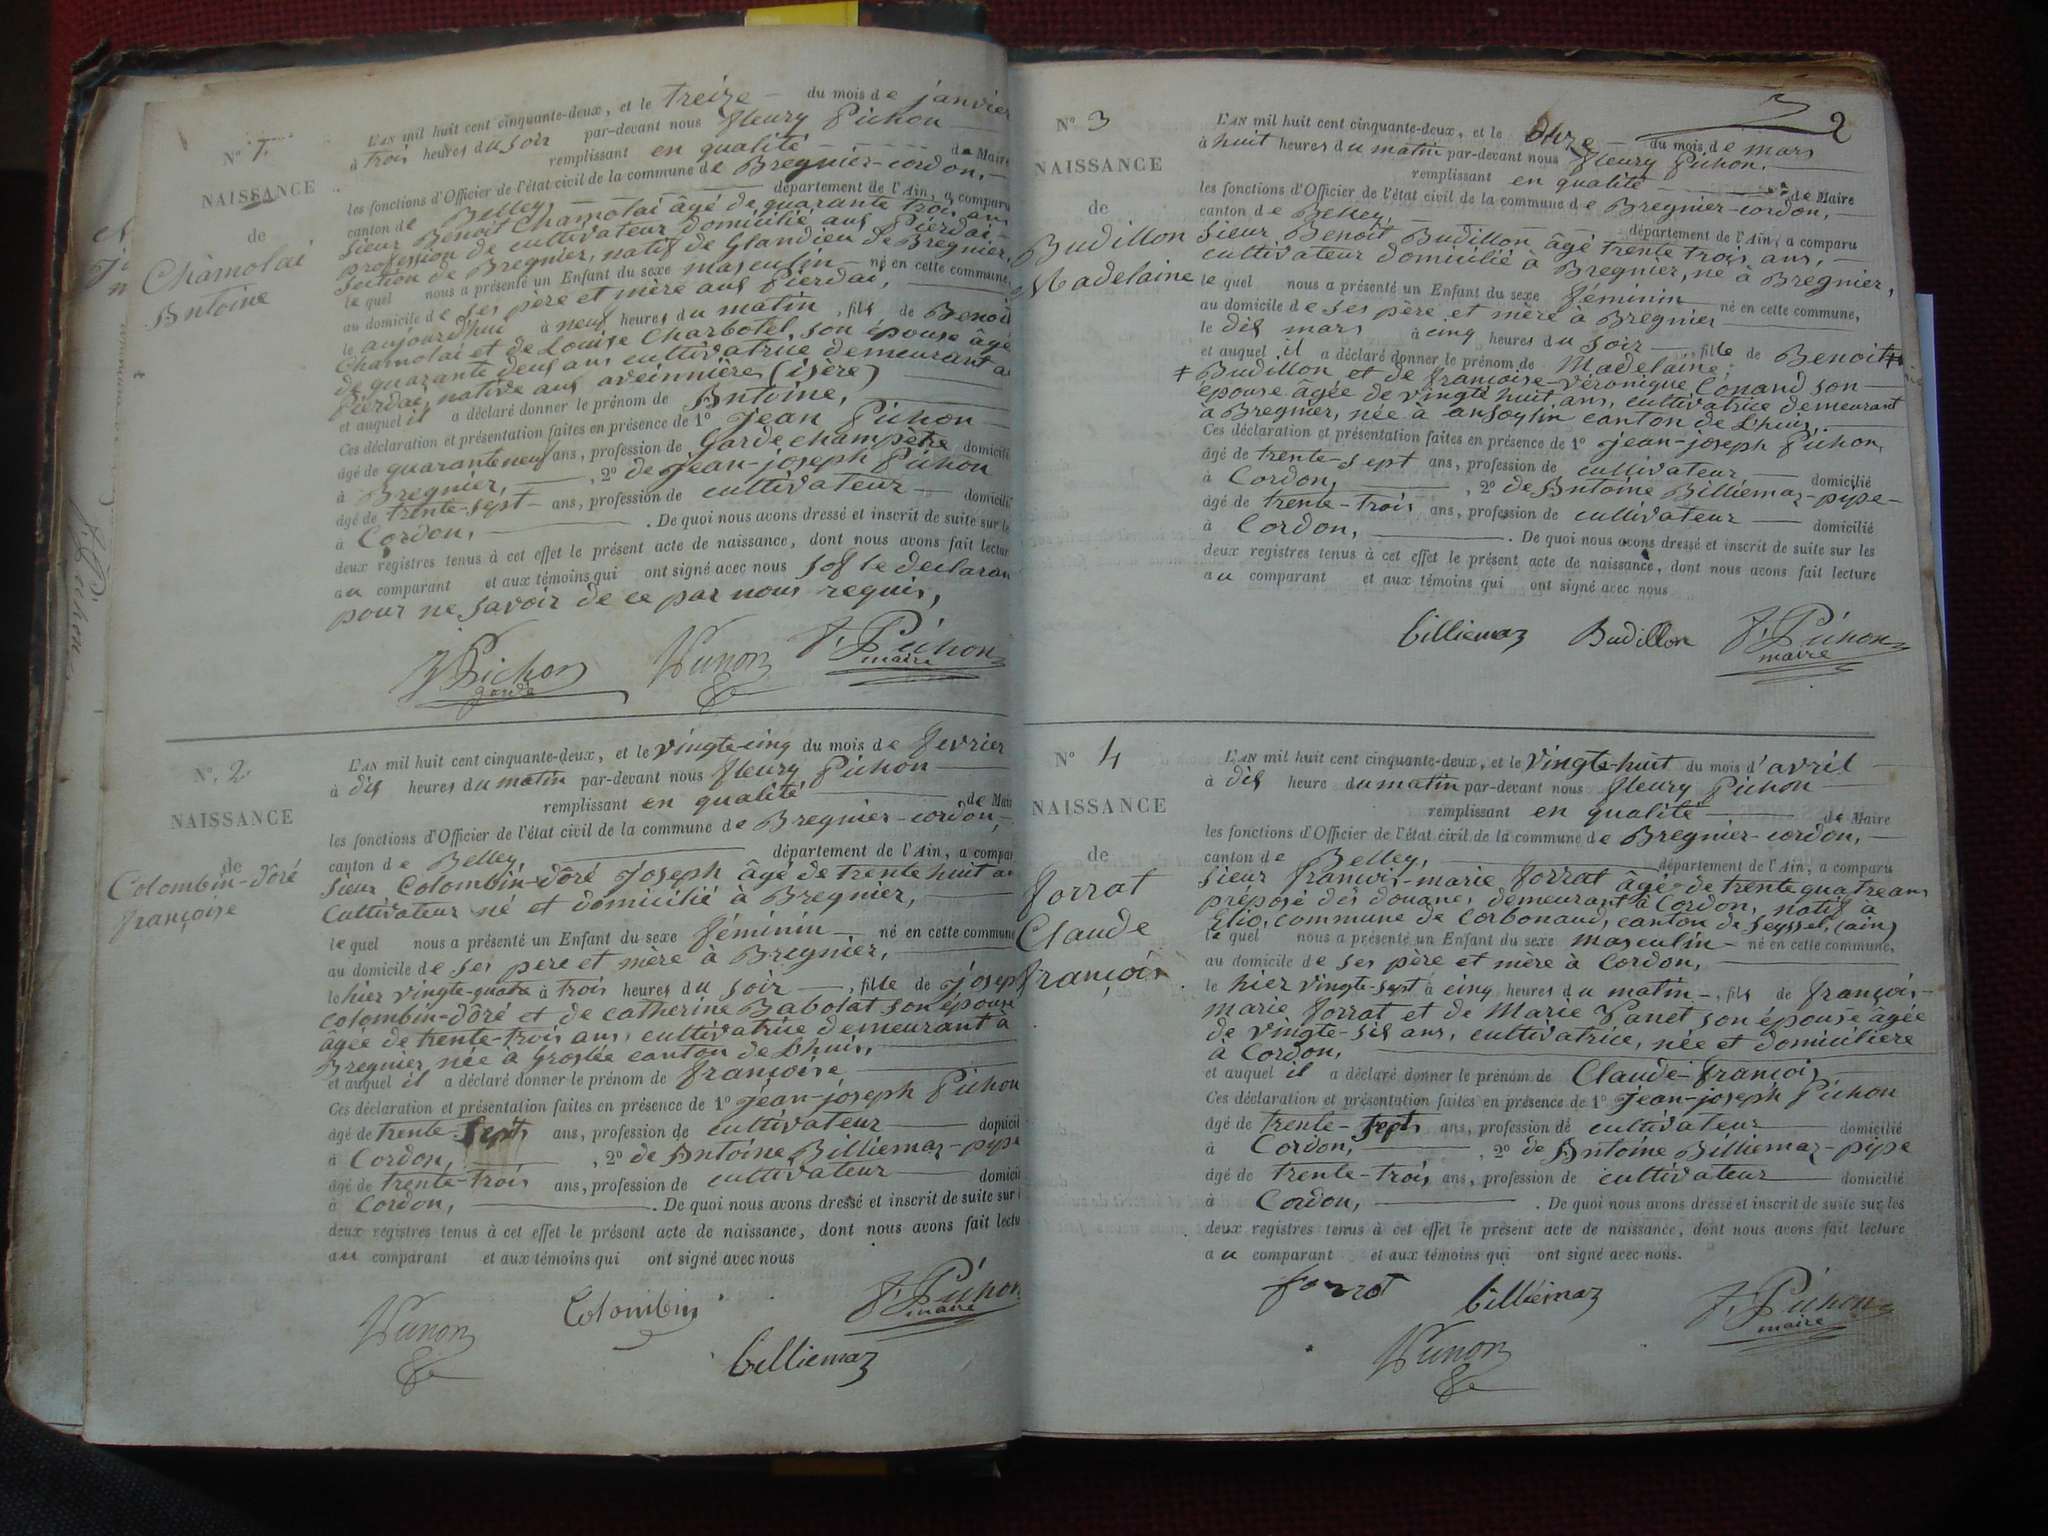 N° 1.
NAISSANCE
de
Chamolai
Antoine
L'AN mil huit cent cinquante-deux, et le treize du mois de janvier
à trois heures du soir par-devant nous fleury Pichon
remplissant en qualité de Maire
les fonctions d'Officier de l'état civil de la commune de Bregnier-cordon,
canton de Belley, département de l'Ain, a comparu
sieur Benoit Chamolai âgé de quarante trois ans
profession de cultivateur domicilié aux Pierdai
section de Bregnier, natif de Glandieu de Bregnier,
le quel nous a présenté un Enfant du sexe masculin né en cette commune,
au domicile de ses père et mère aux Pierdai,
le aujourd'hui à neuf heures du matin, fils de Benoit
Chamolai et de Louise Charbotel, son épouse âgé
de quarante deux ans cultivatrice demeurant a
Pierdai, native aux aveinnière (isère)
et auquel il a déclaré donner le prénom de Antoine,
Ces déclaration et présentation faites en présence de 1° Jean Pichon
âgé de quarante neuf ans, profession de Garde champêtre domicilié
à Bregnier, , 2° de jean-joseph Pichon
âgé de trente-sept ans, profession de cultivateur domicilié
à Cordon, . De quoi nous avons dressé et inscrit de suite sur le
deux registres tenus à cet effet le présent acte de naissance, dont nous avons fait lectur
au comparant et aux témoins qui ont signé avec nous sof le declaran
pour ne savoir de ce par nous requis,
Pichon
garde
F. Pichon
maire
N° 2
NAISSANCE
de
Colombin-doré
françoise
L'AN mil huit cent cinquante-deux, et le vingt-cinq du mois de fevrier
à dix heures du matin par-devant nous fleury Pichon
remplissant en qualité de Mair
les fonctions d'Officier de l'état civil de la commune de Bregnier-cordon,
canton de Belley, département de l'Ain, a compar
sieur Colombin-doré Joseph âgé de trente huit an
cultivateur né et domicilié à Bregnier,
le quel nous a présenté un Enfant du sexe féminin né en cette commune
au domicile de ses pere et mère à Bregnier,
le hier vingte-quatre à trois heures du soir, fille de josep
colombin-doré et de catherine Babolat son épouse
âgée de trente-trois ans, cultivatrice demeurant à
Bregnier née à Groslée canton de Lhuis,
et auquel il a déclaré donner le prénom de françoise
Ces déclaration et présentation faites en présence de 1° jean-joseph Pichon
âgé de trente-sept ans, profession de cultivateur domicil
à Cordon, , 2° de Antoine Billiemaz-pipe
âgé de trente-trois ans, profession de cultivateur domicil
à Cordon, . De quoi nous avons dressé et inscrit de suite sur l
deux registres tenus à cet effet le présent acte de naissance, dont nous avons fait lectu
au comparant et aux témoins qui ont signé avec nous
Colombin
F. Pichon
maire
billiemaz
2
N° 3
NAISSANCE
de
Budillon
Madelaine
L'AN mil huit cent cinquante-deux, et le onze du mois de mars
à huit heures du matin par-devant nous fleury Pichon.
remplissant en qualité de Maire
les fonctions d'Officier de l'état civil de la commune de Bregnier-cordon,
canton de Belley, département de l'Ain, a comparu
sieur Benoit Budillon âgé trente trois ans,
cultivateur domicilié à Bregnier, né à Bregnier,
le quel nous a présenté un Enfant du sexe féminin né en cette commune,
au domicile de ses père et mère à Bregnier
le dix mars à cinq heures du soir, fille de Benoit
et auquel il a déclaré donner le prénom de Madelaine.
Budillon et de françoise-véronique Conand son
épouse âgée de vingte huit ans, cultivatrice demeurant
à Bregnier, née à ansoylin canton de Lhuis,
Ces déclaration et présentation faites en présence de 1° jean-joseph Pichon,
âgé de trente-sept ans, profession de cultivateur domicilié
à Cordon, , 2° de Antoine Billiemaz-pipe
âgé de trente-trois ans, profession de cultivateur domicilié
à Cordon, . De quoi nous avons dressé et inscrit de suite sur les
deux registres tenus à cet effet le présent acte de naissance, dont nous avons fait lecture
au comparant et aux témoins qui ont signé avec nous
billiemaz Budillon F. Pichon
maire
N° 4
NAISSANCE
de
Forrat
Claude
françois
L'AN mil huit cent cinquante-deux, et le vingte-huit du mois d'avril
à dix heure du matin par-devant nous fleury Pichon
remplissant en qualité de Maire
les fonctions d'Officier de l'état civil de la commune de Bregnier-cordon,
canton de Belley, département de l'Ain, a comparu
sieur françois-marie Forrat âgé de trente quatre ans
préposé des douanes, demeurant à Cordon, natif à
Elio, commune de Corbonaud, canton de Seyssel, (ain)
le quel nous a présenté un Enfant du sexe masculin né en cette commune,
au domicile de ses père et mère à Cordon,
le hier vingte-sept à cinq heures du matin, fils de françois-
marie Forrat et de Marie Vanet son épouse âgée
de vingte-six ans, cultivatrice, née et domicilière
à Cordon,
et auquel il a déclaré donner le prénom de Claude-françois
Ces déclaration et présentation faites en présence de 1° jean-joseph Pichon
âgé de trente-sept ans, profession de cultivateur domicilié
à Cordon, , 2° de Antoine Billiemaz-pipe
âgé de trente-trois ans, profession de cultivateur domicilié
à Cordon, . De quoi nous avons dressé et inscrit de suite sur les
deux registres tenus à cet effet le présent acte de naissance, dont nous avons fait lecture
au comparant et aux témoins qui ont signé avec nous.
forrat billiemaz F. Pichon
maire